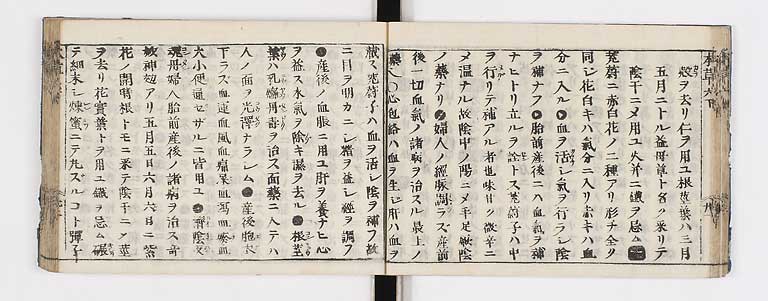 殻ヲ去リ仁ヲ用ユ根莖葉ハ三月
五月ニトル益母草ト名ク来リテ
陰干ニメ用ユ火并ニ鐵ヲ忌ム
茺蔚ニ赤白花ノ二種アリ形チ全ク
同シ花白キハ氣分ニ入リ赤キハ血
分ニ入ル血ヲ活シ氣ヲ行ラシ陰
ヲ補ナフ胎前産後ニハ血氣ヲ補
ナヒトリ立ルヲ詮トス茺蔚子ハ中
ヲ行リテ補アル者也味甘ク微辛ニ
メ温ナル故陰中ノ陽ニメ手足厥陰
ノ藥ナリ婦人ノ經脉調ラズ産前
後一切血氣ノ諸病ヲ治スル最上ノ
藥心包絡ハ血ヲ生シ肝ハ血ヲ
藏ス茺蔚子ハ血ヲ活シ陰ヲ補フ故
ニ目ヲ明カニシ精ヲ益シ經ヲ調フ
産後ノ血脹ニ用ユ肝ヲ養ナヒ心
ヲ益ス水氣ヲ除キ濕ヲ去ル根莖
葉ハ乳癰丹毒ヲ治ス面藥ニ入テハ
人ノ面ヲ光澤ナラシム産後胞衣
下ラス血運血風血痛崩血瀉血
大小便通セサルニ皆用ユ濟陰
婦人胎前産後ノ諸病ヲ治ス奇
効神如アリ五月五日六月六日ニ紫
花ノ開時根トモニ采テ陰干ニメ莖
ヲ去リ花實葉トヲ用ユ鐵ヲ忌ム碾
テ細末シ煉蜜ニテ丸ズルコト彈子